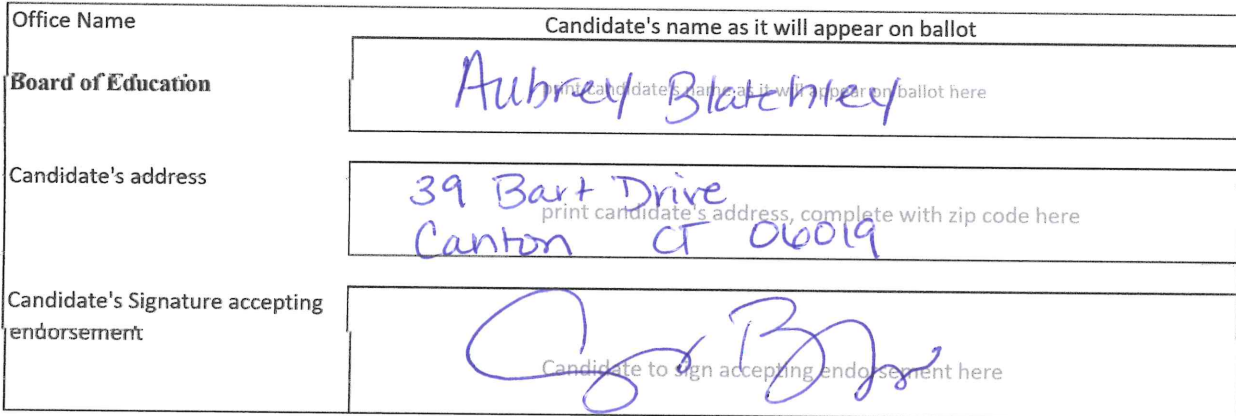 Office Name
Candidate's name as it will appear on ballot
Board of Education
Aubrey Blatchley
print candidate's name as it will appear on ballot here
Candidate's address
39 Bart Drive
print candidate's address, complete with zip code here
Canton CT 06019
Candidate's Signature accepting
endorsement
Candidate to sign accepting endorsement here